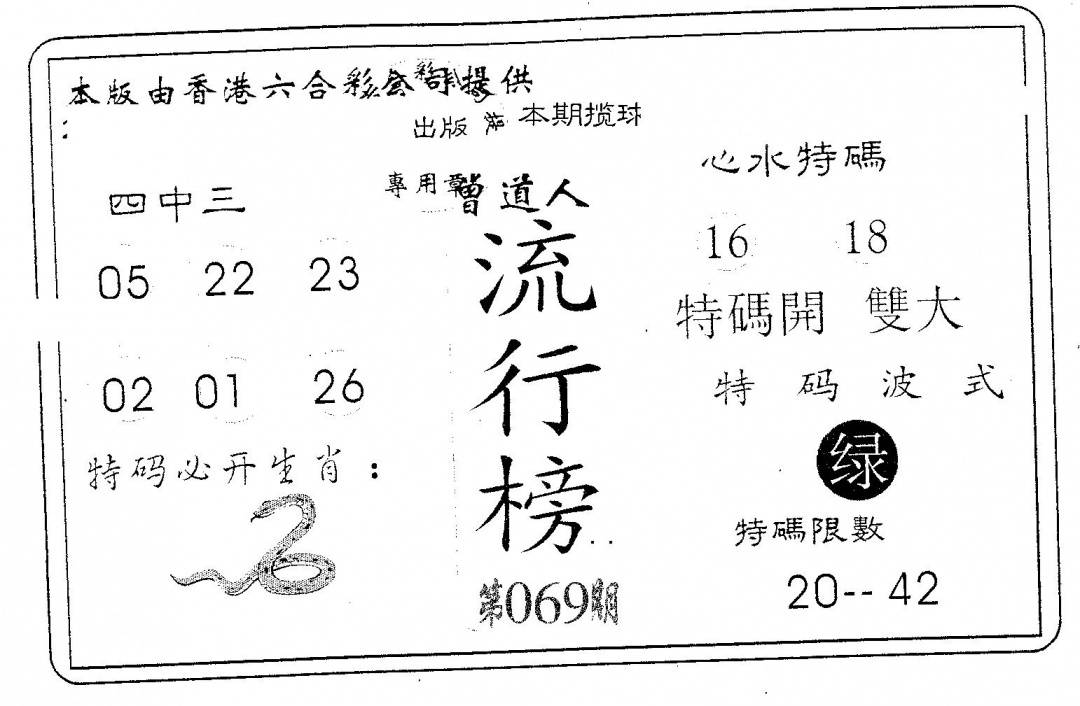 本版由香港六合彩公司提供
:
出版 本期揽球
專用章
曾道人
流行榜
第069期
四中三
05 22 23
02 01 26
特码必开生肖：
心水特碼
16 18
特碼開 雙大
特码波式
绿
特碼限數
20-- 42